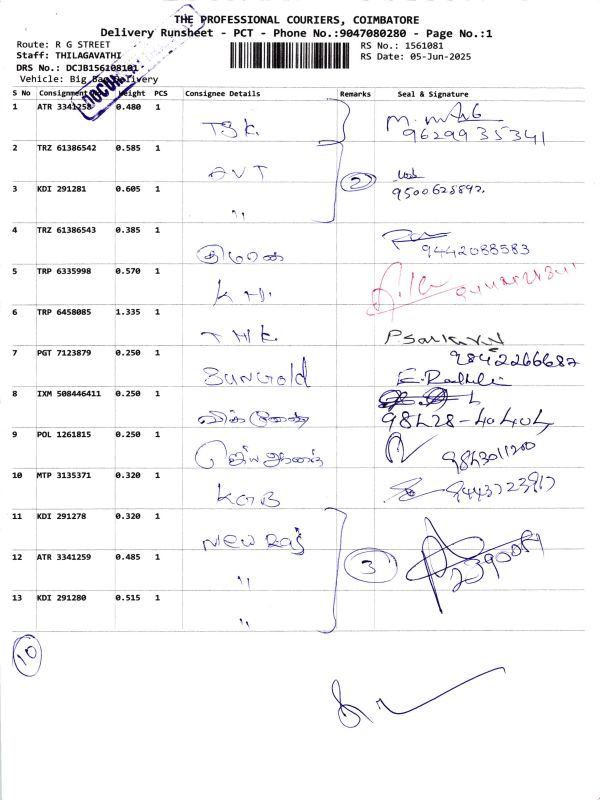 THE PROFESSIONAL COURIERS, COIMBATORE
Delivery Runsheet - PCT - Phone No.:9047080280 - Page No.:1
Route: R G STREET
RS No.: 1561081
Staff: THILAGAVATHI
RS Date: 05-Jun-2025
DRS No.: DCJB156108101
Vehicle: Big Bag Delivery
S No Consignment Weight PCS Consignee Details Remarks Seal & Signature
1 ATR 3341258 0.480 1
TSK. 9629935341
2 TRZ 61386542 0.585 1
AVT 2
3 KDI 291281 0.605 1 9500628892.
"
4 TRZ 61386543 0.385 1
9442088583
5 TRP 6335998 0.570 1
K H.
6 TRP 6458085 1.335 1
T H K.
7 PGT 7123879 0.250 1 9842266687
SUNGold
8 IXM 508446411 0.250 1
98428-40404
9 POL 1261815 0.250 1
9843011200
10 MTP 3135371 0.320 1
KGB 9443723917
11 KDI 291278 0.320 1
NEW Raj
12 ATR 3341259 0.485 1 3
"
13 KDI 291280 0.515 1
"
10